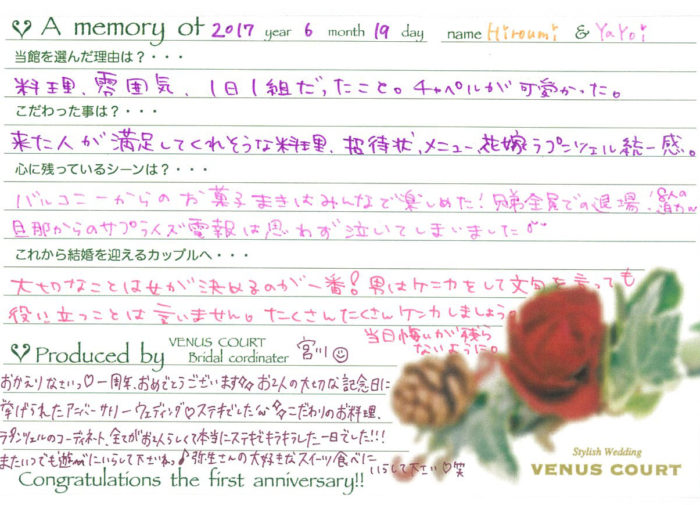 A memory of 2017 year 6 month 19 day name Hiroumi & YaYoi
当館を選んだ理由は？・・・
料理、雰囲気、1日1組だったこと。チャペルが可愛かった。
こだわった事は？・・・
来た人が満足してくれそうな料理、招待状、メニュー、花嫁ラプンツェル統一感。
心に残っているシーンは？・・・
バルコニーからのお菓子まきはみんなで楽しめた！兄弟全員での退場！8人の迫力〜
旦那からのサプライズ電報は思わず泣いてしまいました
これから結婚を迎えるカップルへ・・・
大切なことは女が決めるのが一番！男はケンカをして文句を言っても
役に立つことは言いません。たくさんたくさんケンカしましょう。
当日悔いが残らないように。
Produced by VENUS COURT Bridal cordinater 宮川
おかえりなさいっ♡一周年、おめでとうございます☆お2人の大切な記念日に
挙げられたアニバーサリーウェディング♡ステキでした〜☆こだわりのお料理、
ラプンツェルのコーディネート、全てがお2人らしくて本当にステキでキラキラした一日でした!!!
またいつでも遊びにいらして下さいねっ♪弥生さんの大好きなスイーツ食べに
いらして下さい♡笑
Congratulations the first anniversary!!
Stylish Wedding
VENUS COURT